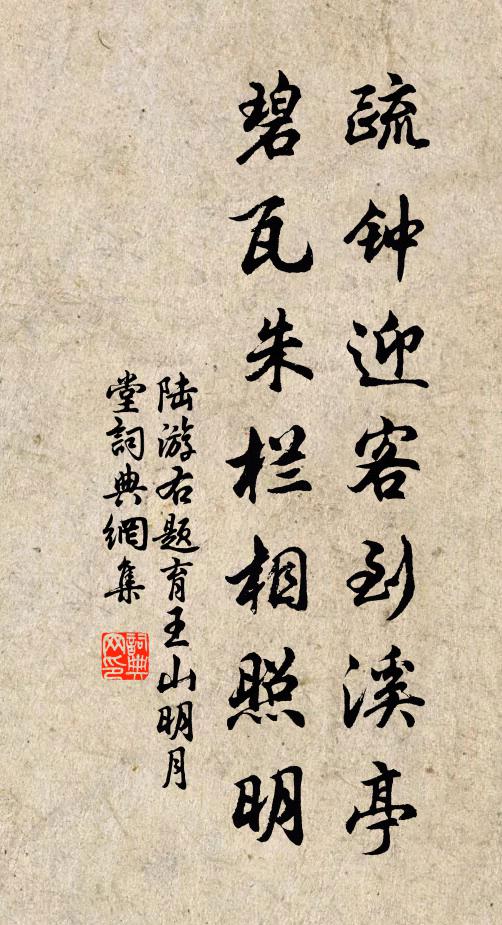 疏钟迎客到溪亭
碧瓦朱栏相照明
陆游右题育王山明月
堂詞典網集
詞典網印